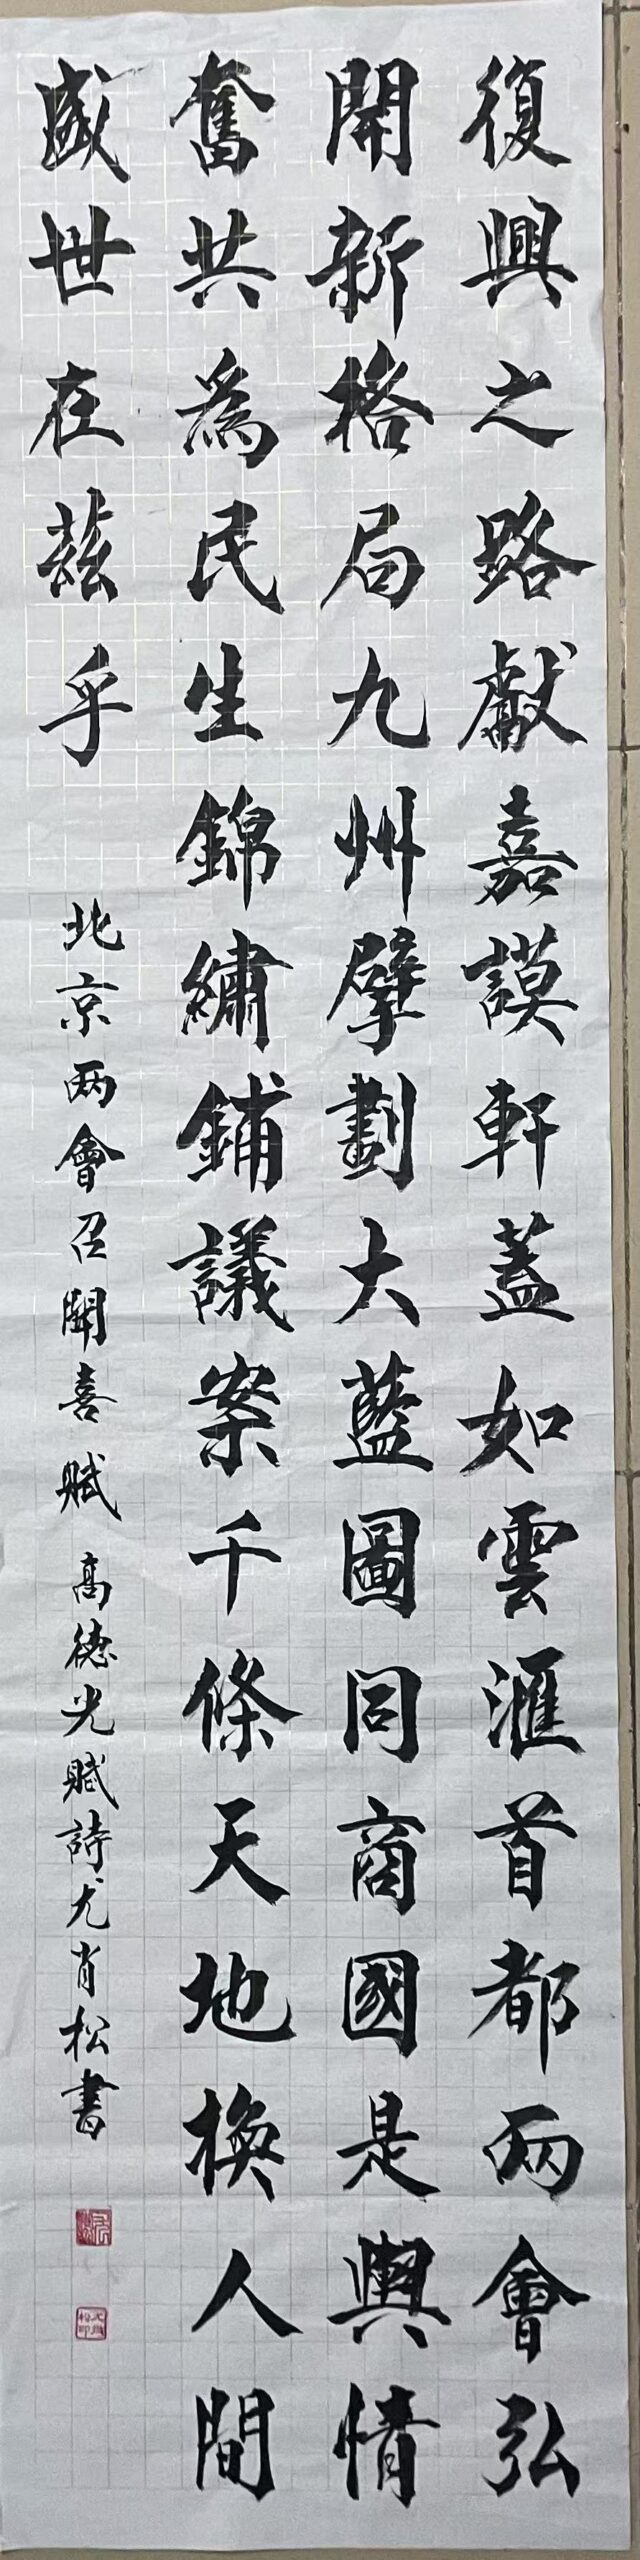 復興之路獻嘉謨軒蓋如雲滙首都兩會弘
開新格局九州擘劃大藍圖同商國是輿情
奮共為民生錦繡鋪議案千條天地換人間
盛世在茲乎
北京兩會召開喜賦 高德光賦詩尤肖松書